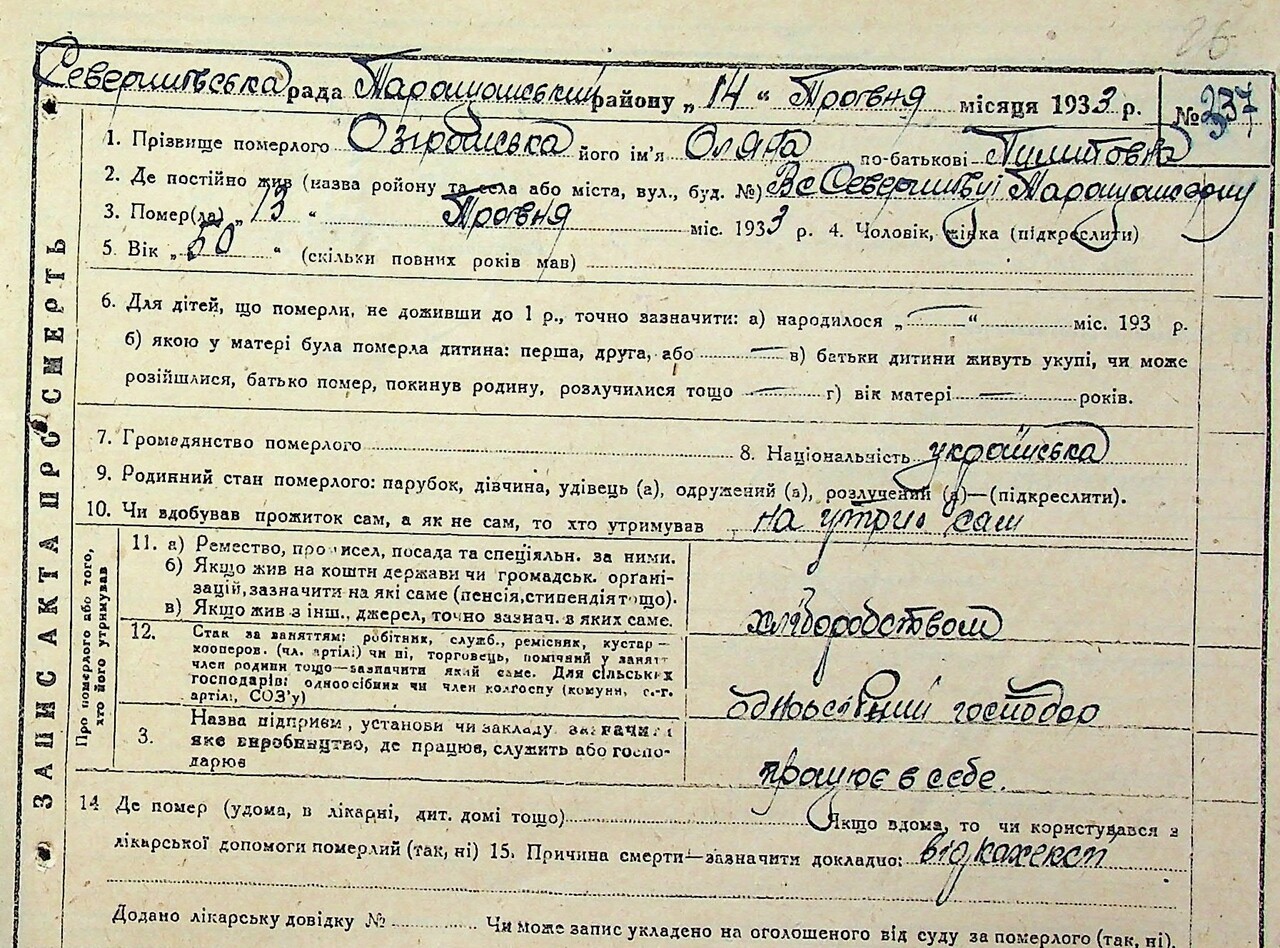 86
Северинівська рада Таращанський району „ 14 “ Травня місяця 1933 р. № 237
1. Прізвище померлого його ім'я по-батькові
2. Де постійно жив (назва ройону та села або міста, вул., буд. №) В с Северинівці Таращанс району
3. Помер(ла) „ 13 “ Травня міс. 1933 р. 4. Чоловік, жінка (підкреслити)
5. Вік „ 50 “ (скільки повних років мав)
6. Для дітей, що померли, не доживши до 1 р., точно зазначити: а) народилося „ — “ міс. 193 р.
б) якою у матері була померла дитина: перша, друга, або — в) батьки дитини живуть укупі, чи може
розійшлися, батько помер, покинув родину, розлучилися тощо — г) вік матері — років.
7. Громадянство померлого 8. Національність українська
9. Родинний стан померлого: парубок, дівчина, удівець (а), одружений (а), розлучений (а)—(підкреслити).
10. Чи вдобував прожиток сам, а як не сам, то хто утримував на утрим сам
ЗАПИС АКТА ПРО СМЕРТЬ
Про померлого або того,
хто його утримував
11. а) Ремество, промисел, посада та спеціяльн. за ними.
б) Якщо жив на кошти держави чи громадськ. орґані-
зацій, зазначити на які саме (пенсія, стипендія тощо).
в) Якщо жив з інш., джерел, точно зазнач. в яких саме.
хліборобством
12. Стан за заняттям: робітник, служб., ремісник, кустар —
кооперов. (чл. артілі) чи ні, торговець, помічний у занятт
член родини тощо—зазначити який саме. Для сільських
господарів: одноосібник чи член колгоспу (комуни, с.-г.
артілі, СОЗ'у)
одноосібний господар
3. Назва підприєм, установи чи закладу зазначити
яке виробництво, де працює, служить або госпо-
дарює
працює в себе.
14 Де помер (удома, в лікарні, дит. домі тощо) Якщо вдома, то чи користувався з
лікарської допомоги померлий (так, ні) 15. Причина смерти—зазначити докладно: від кахексії
Додано лікарську довідку № Чи може запис укладено на оголошеного від суду за померлого (так, ні).